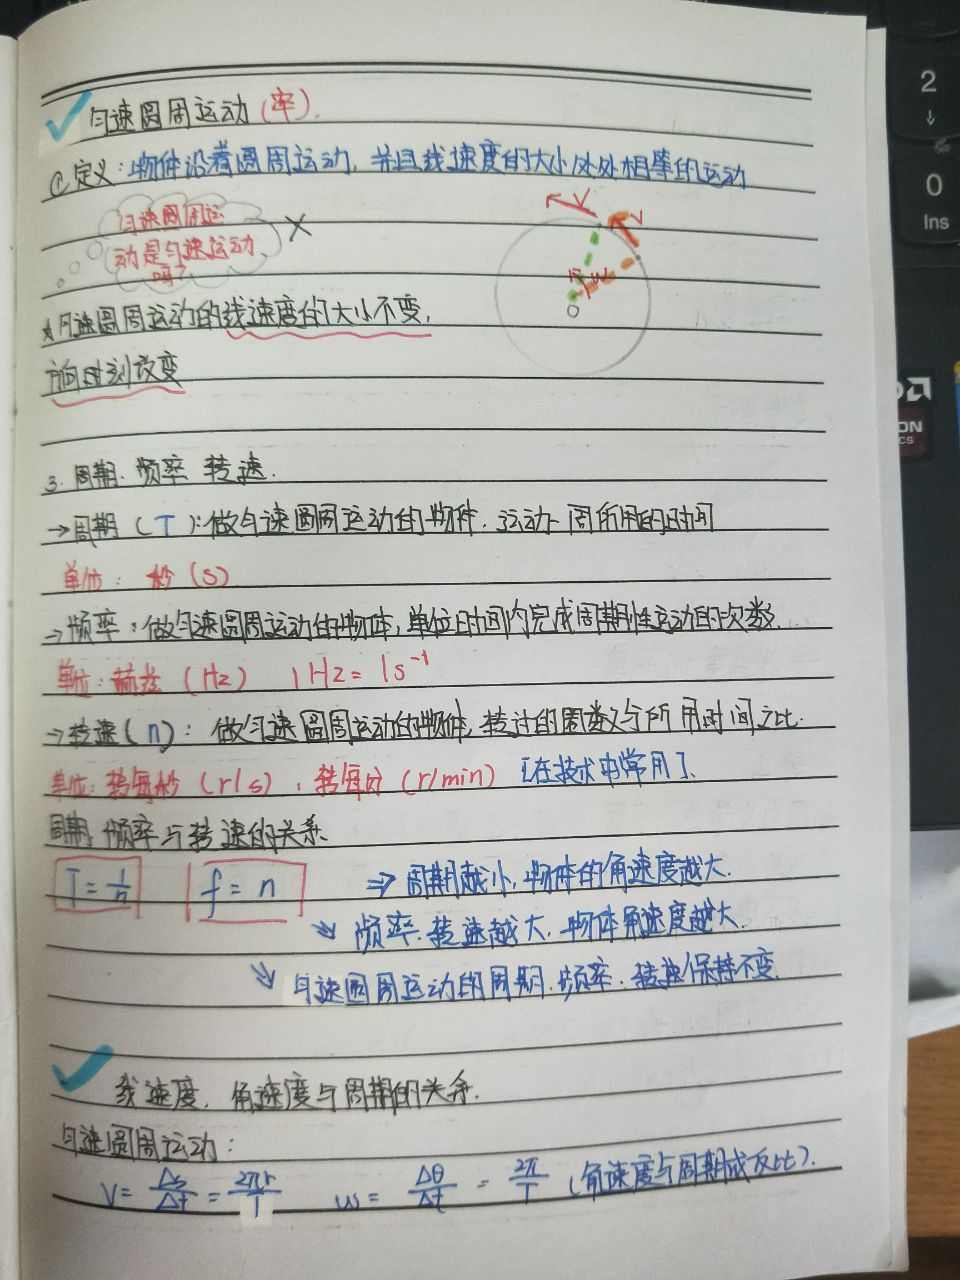 匀速圆周运动(率).
①定义:物体沿着圆周运动,并且线速度的大小处处相等的运动
匀速圆周运
动是匀速运动
吗?
×
V
V
r
r
O
匀速圆周运动的线速度的大小不变,
方向时刻改变
3.周期.频率 转速.
→周期(T):做匀速圆周运动的物体.运动一周所用的时间
单位: 秒(s)
→频率:做匀速圆周运动的物体,单位时间内完成周期性运动的次数.
单位:赫兹(Hz) 1Hz=1s⁻¹
→转速(n): 做匀速圆周运动的物体,转过的圈数与所用时间之比.
单位:转每秒(r/s),转每分(r/min) [在技术中常用].
周期.频率与转速的关系.
T=1/n f=n ⇒周期越小,物体的角速度越大.
⇒频率.转速越大.物体角速度越大.
⇒匀速圆周运动的周期.频率.转速保持不变.
线速度.角速度与周期的关系.
匀速圆周运动:
V=Δs/Δt=2πr/T ω=Δθ/Δt=2π/T(角速度与周期成反比).
2
↓
0
Ins